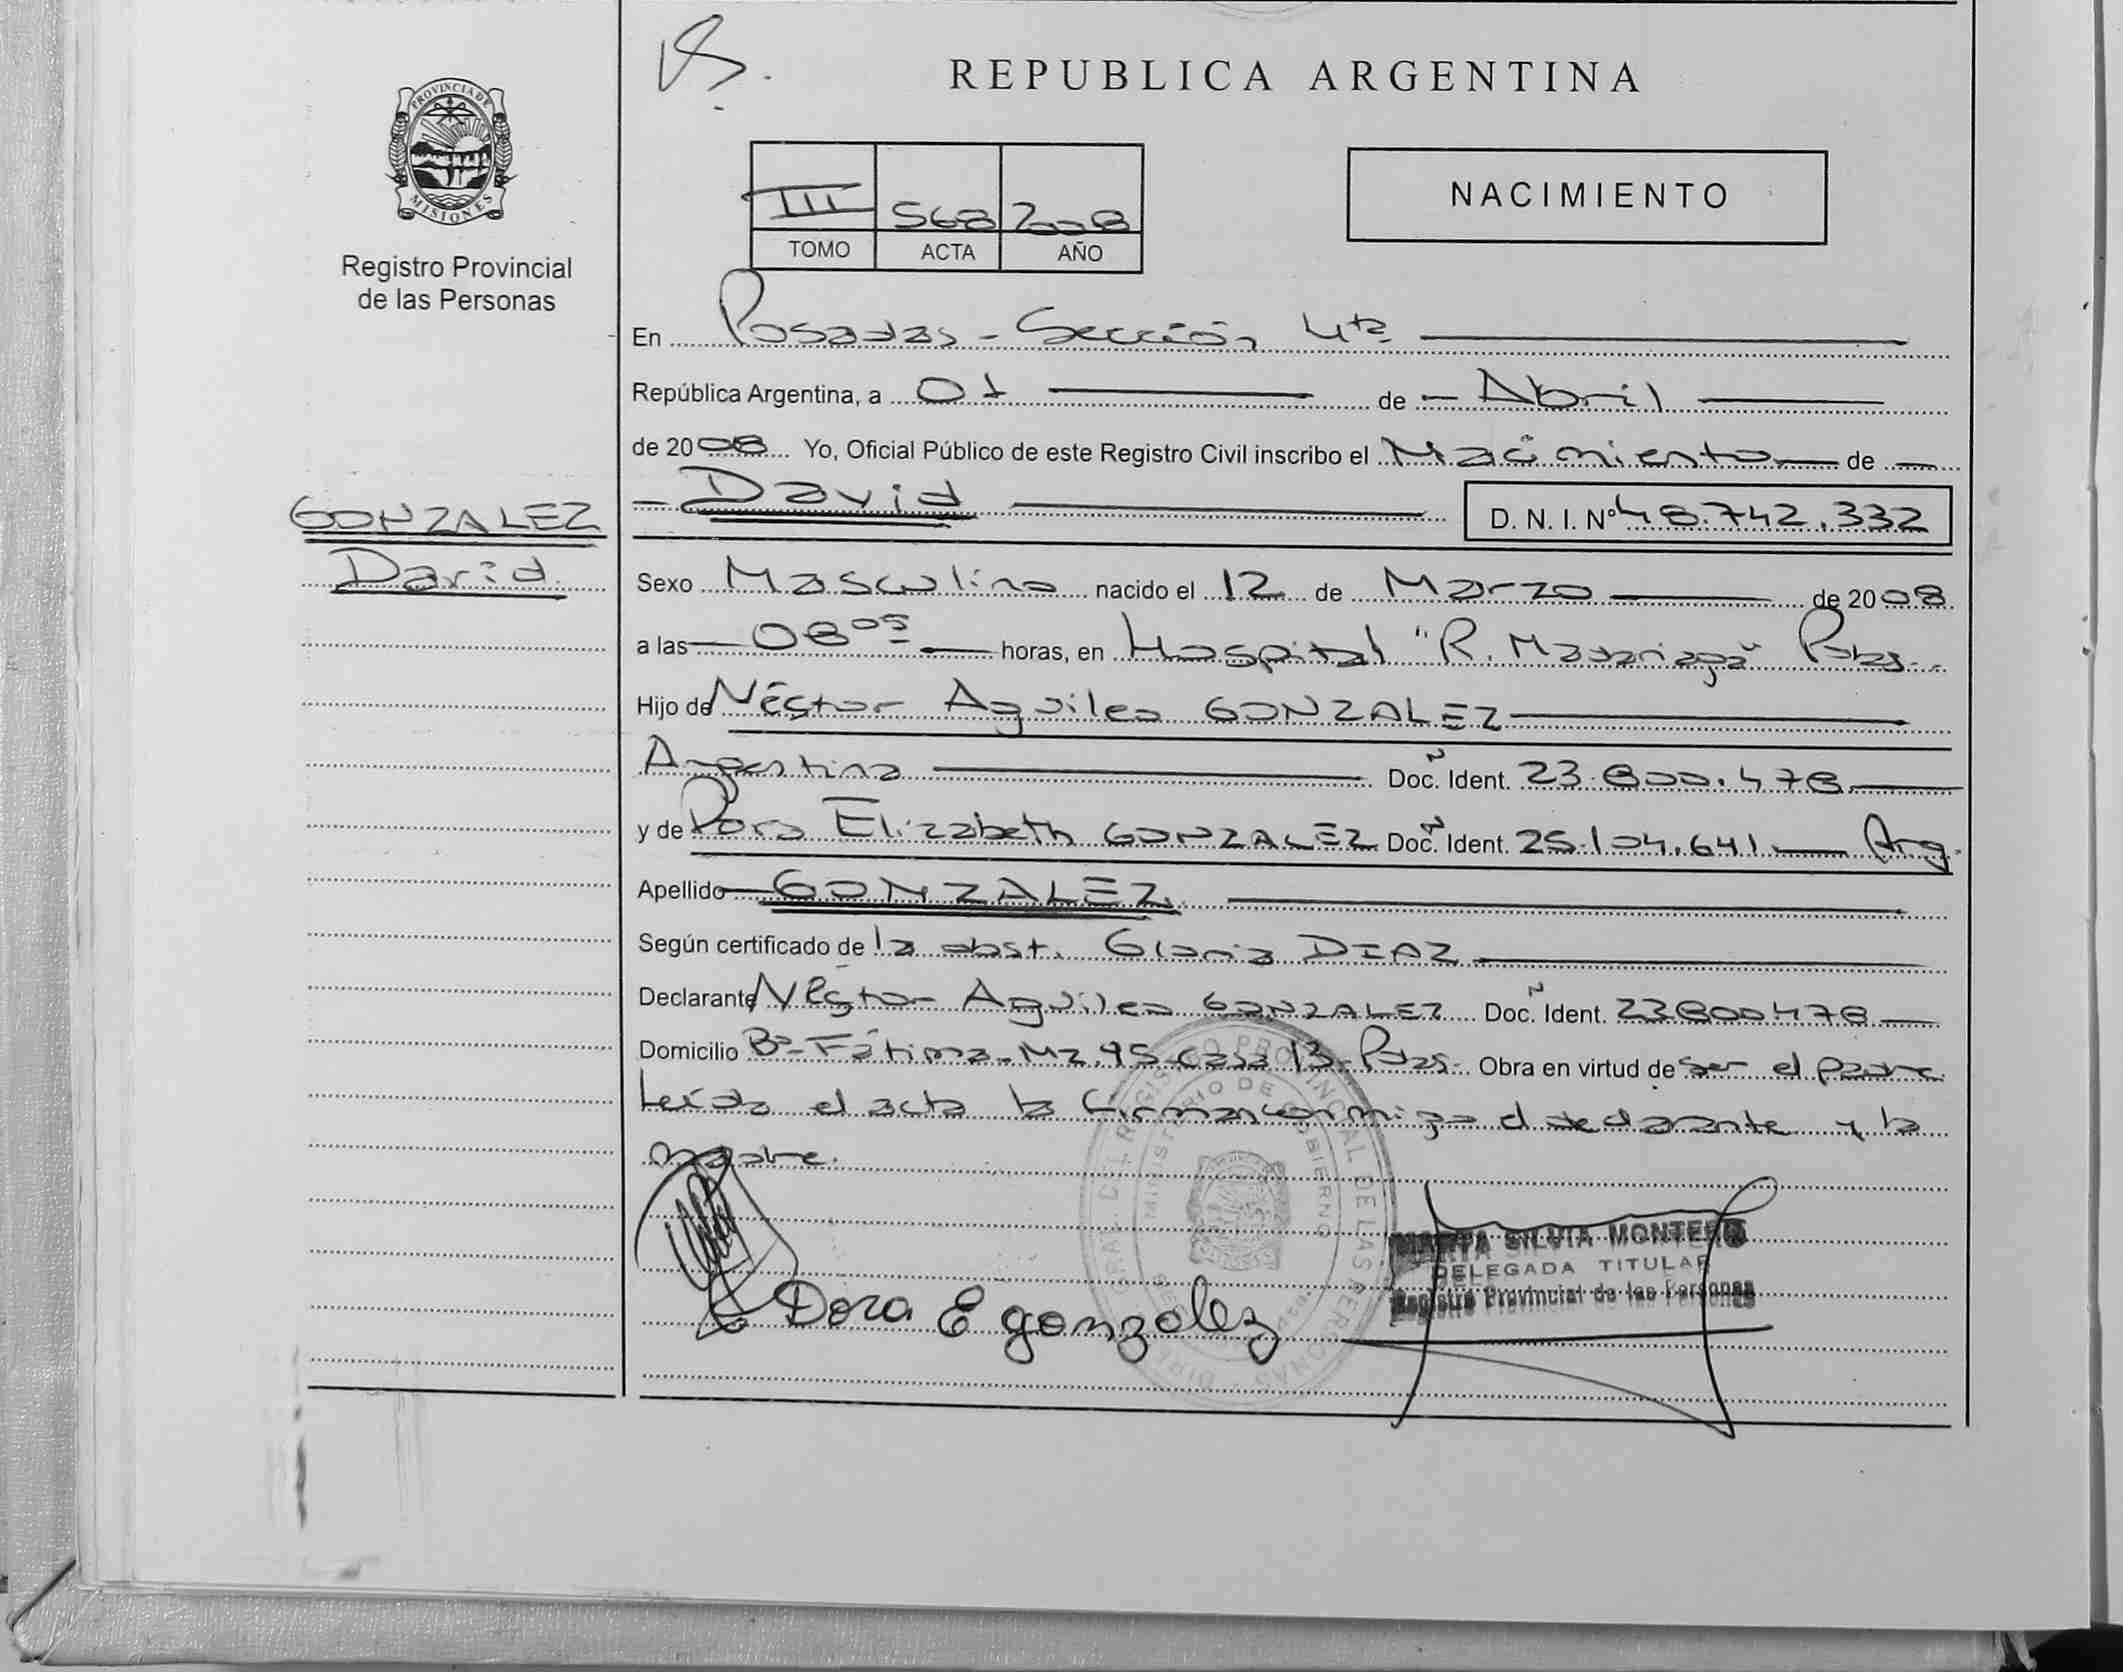 REPUBLICA ARGENTINA
PROVINCIA DE
MISIONES
Registro Provincial
de las Personas
III 568 2008
TOMO ACTA AÑO
NACIMIENTO
En Posadas - Sección 4ta
República Argentina, a 01 de Abril
de 2008 Yo, Oficial Público de este Registro Civil inscribo el Nacimiento de
David D. N. I. Nº 48.742.332
GONZALEZ
David
Sexo Masculino nacido el 12 de Marzo de 2008
a las 08 05 horas, en Hospital "R. Madariaga" Pdas.
Hijo de Néstor Aguileo GONZALEZ
Argentina Doc. Ident. 23.800.478
y de Dora Elizabeth GONZALEZ Doc. Ident. 25.104.641 Arg.
Apellido GONZALEZ
Según certificado de la obst. Gloria DIAZ
Declarante Néstor Aguileo GONZALEZ Doc. Ident. 23800478
Domicilio Bº Fátima - Mz. 95 - Casa 13 - Pdas. Obra en virtud de ser el padre
Leída el acta la firman conmigo el declarante y la
madre.
MARTA SILVIA MONTERO
DELEGADA TITULAR
Registro Provincial de las Personas
Dora E gonzalez